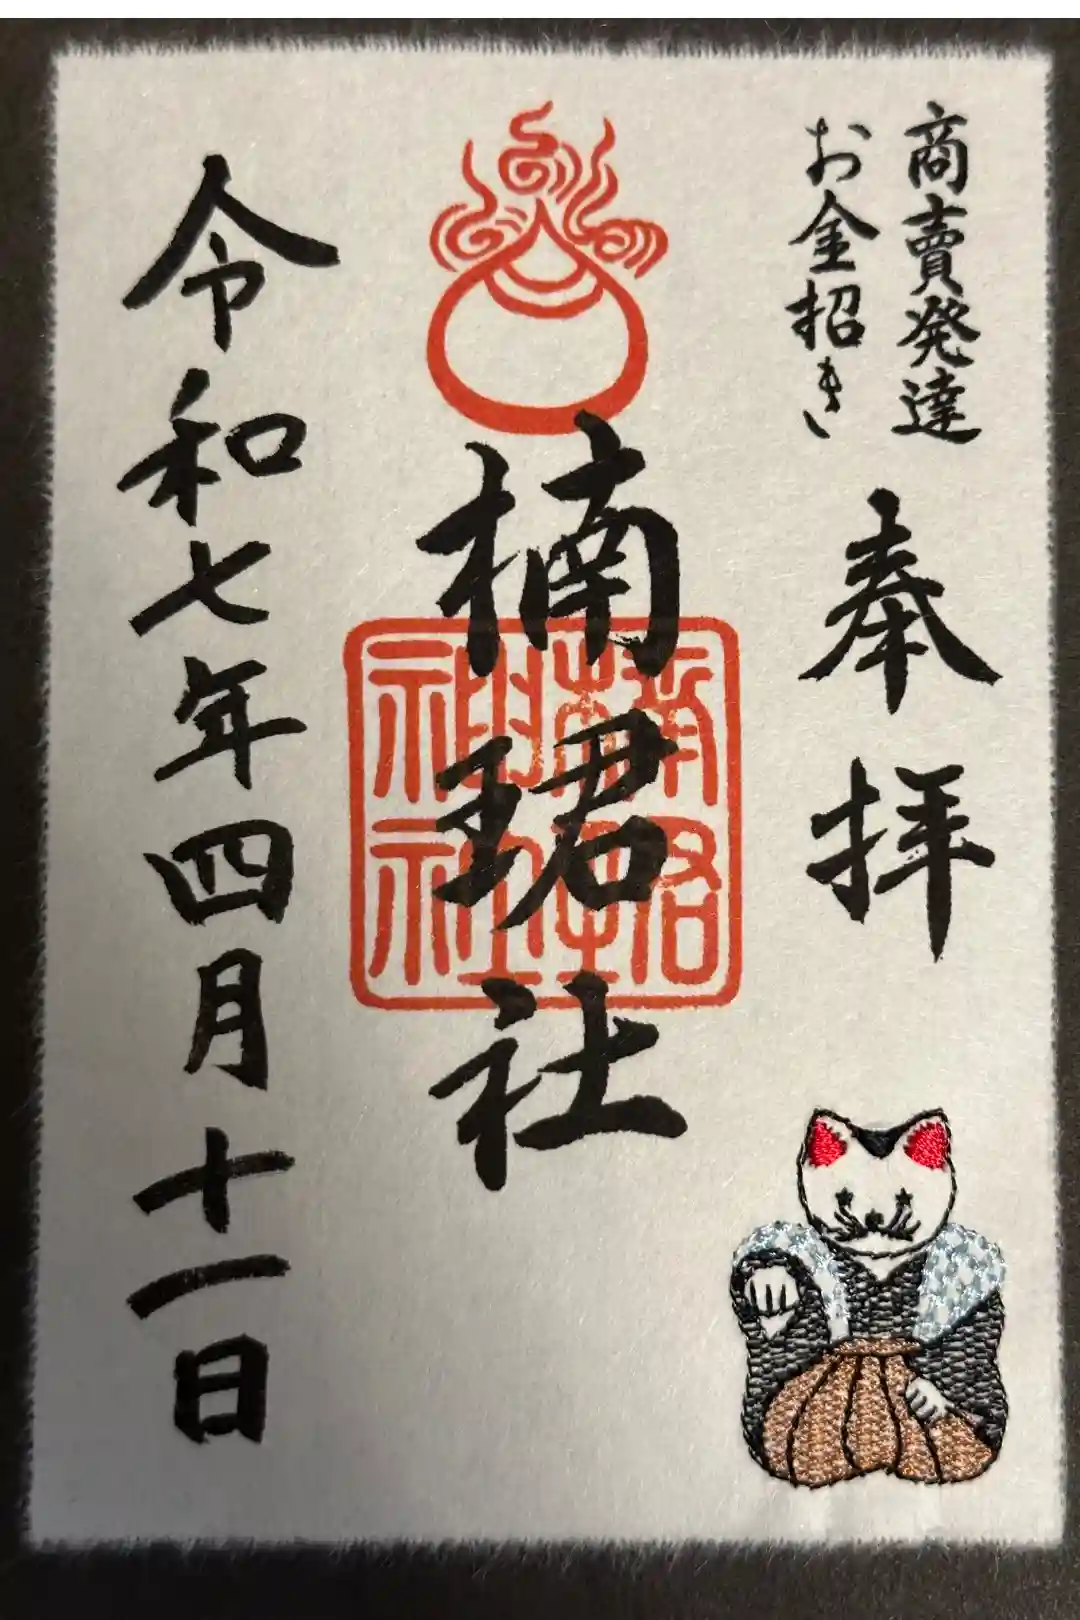 商賣発達
お金招き
奉拝
楠珺社
令和七年四月十一日